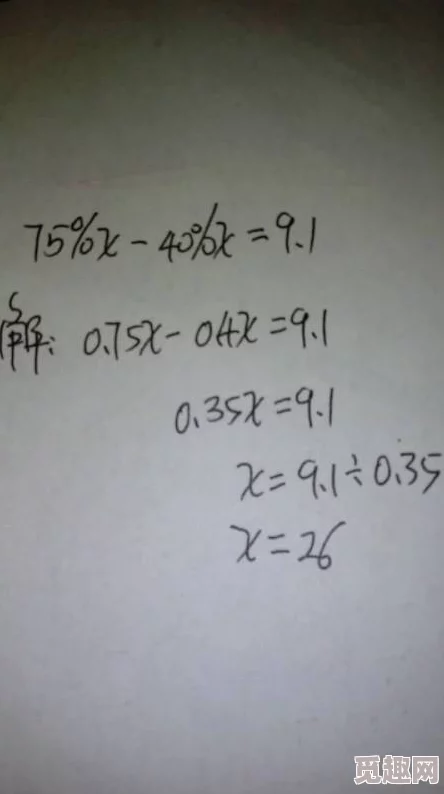 75%x - 40%x = 9.1
解: 0.75x - 04x = 9.1
0.35x = 9.1
x = 9.1 ÷ 0.35
x = 26
觅趣网